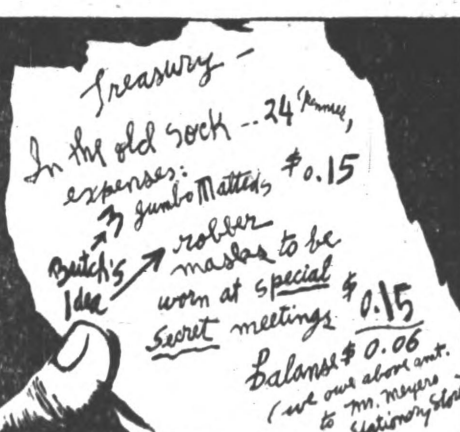 Treasury —
In the old sock -- 24 Pennies,
expenses:
3 Jumbo Malteds $0.15
Butch's Idea
robber
masks to be
worn at special
secret meetings $0.15
Balanse $0.06
(we owe above amt.
to Mr. Meyers
Stationary Store